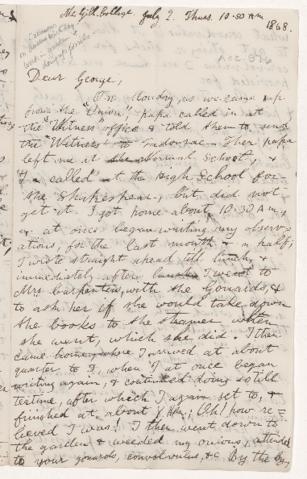 McGill College July 2. Thurs. 10.30 A.M.
1868.
Dear George,
On Monday, as we came up
from the "Union", papa called in at
the "Witness" office & told them to send
the "Witness" to Tadousac. Then papa
left me at the Normal School, &
I called at the High School for
the Shakespeare, but did not
get it. I got home about 10.30 A.M. &
at once began writing my observ-
ations, for the last month & a half;
I wrote straight ahead till lunch, &
immediately after I went to
Mrs Carpenter, with the Gourds, &
to ask her if she would take down
the books to the steamer when
she went, which she did. I then
came home, where I arrived at about
quarter to 3, when I at once began
writing again, & continued doing so till
teatime, after which I again set to, &
finished at about 8 P.M; Oh! how re-
lieved I was! I then went down to
the garden & weeded my onions, attended
to your gourds, convolvulus, &c. By the by,